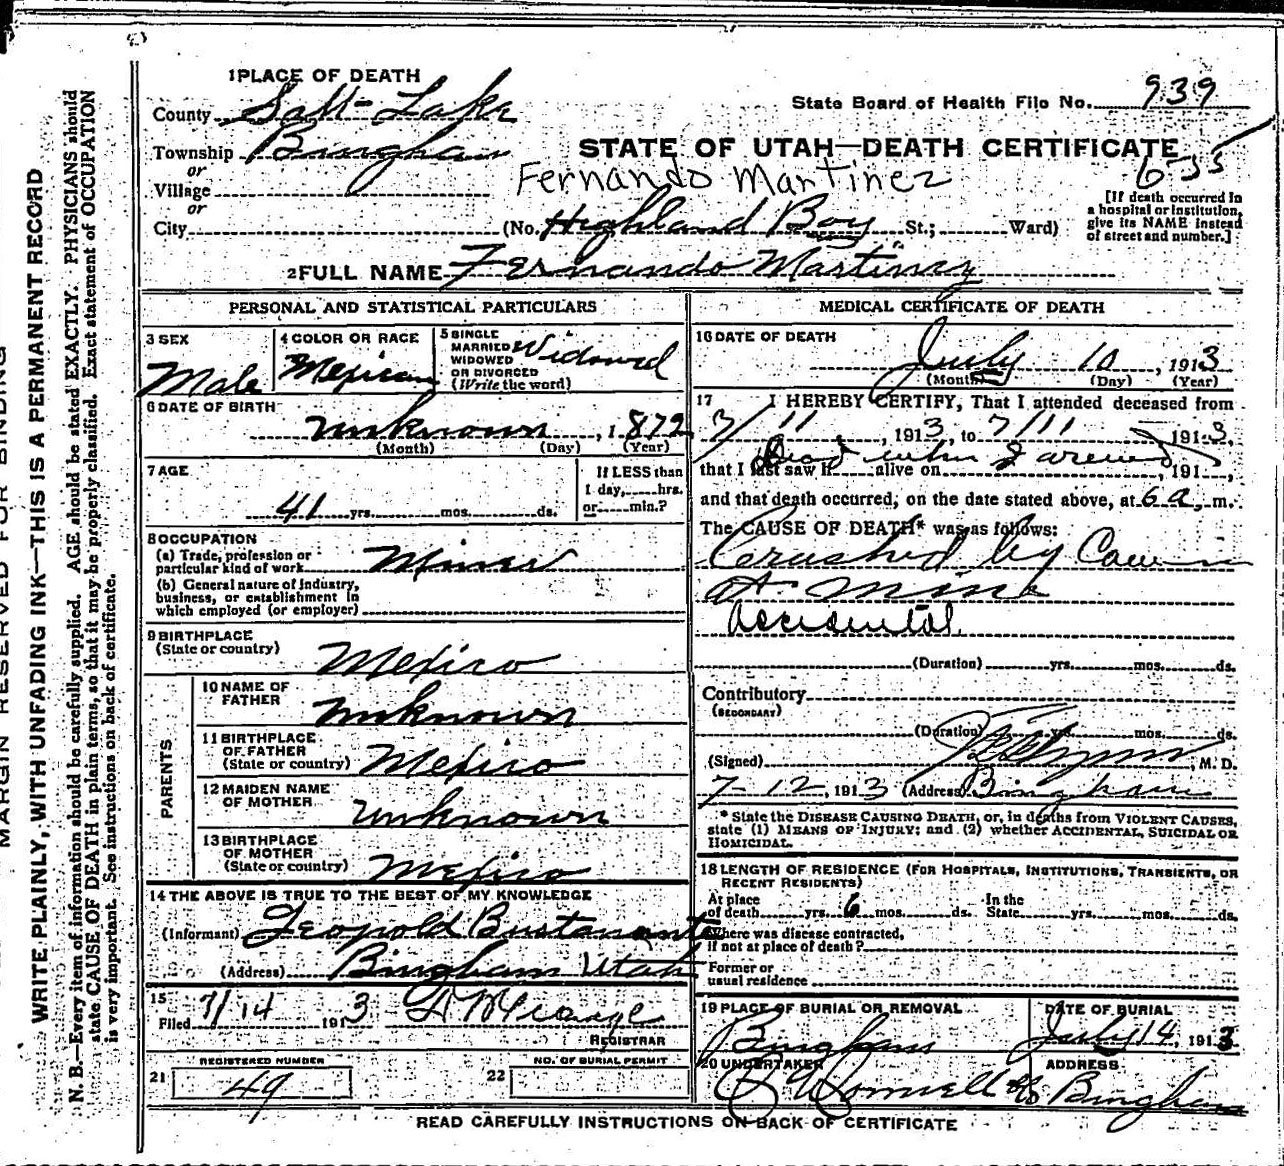 MARGIN RESERVED FOR BINDING
WRITE PLAINLY, WITH UNFADING INK—THIS IS A PERMANENT RECORD
N. B.—Every item of information should be carefully supplied. AGE should be stated EXACTLY. PHYSICIANS should
state CAUSE OF DEATH in plain terms, so that it may be properly classified. Exact statement of OCCUPATION
is very important. See instructions on back of certificate.
1 PLACE OF DEATH
County Salt Lake
Township Bingham
or
Village
or
City
State Board of Health File No. 939
STATE OF UTAH—DEATH CERTIFICATE
635
Fernando Martinez
(No. Highland Boy St.; Ward)
[If death occurred in
a hospital or institution,
give its NAME instead
of street and number.]
2 FULL NAME Fernando Martinez
PERSONAL AND STATISTICAL PARTICULARS
3 SEX
Male
4 COLOR OR RACE
Mexican
5 SINGLE
MARRIED
WIDOWED
OR DIVORCED
(Write the word)
Widowed
6 DATE OF BIRTH
unknown, 1872
(Month) (Day) (Year)
7 AGE
41 yrs. mos. ds.
If LESS than
1 day, hrs.
or min.?
8 OCCUPATION
(a) Trade, profession or
particular kind of work Miner
(b) General nature of industry,
business, or establishment in
which employed (or employer)
9 BIRTHPLACE
(State or country) Mexico
PARENTS
10 NAME OF
FATHER unknown
11 BIRTHPLACE
OF FATHER
(State or country) Mexico
12 MAIDEN NAME
OF MOTHER unknown
13 BIRTHPLACE
OF MOTHER
(State or country) Mexico
14 THE ABOVE IS TRUE TO THE BEST OF MY KNOWLEDGE
(Informant) Leopold Bustamante
(Address) Bingham Utah
15
Filed 7/14 1913
REGISTRAR
REGISTERED NUMBER
21 49
NO. OF BURIAL PERMIT
22
MEDICAL CERTIFICATE OF DEATH
16 DATE OF DEATH
July 10, 1913
(Month) (Day) (Year)
17 I HEREBY CERTIFY, That I attended deceased from
7/11, 1913, to 7/11 1913,
Dead when I arrived
that I last saw h alive on , 191 ,
and that death occurred, on the date stated above, at 6 a. m.
The CAUSE OF DEATH* was as follows:
Crushed by Cave in
at mine
Accidental
(Duration) yrs. mos. ds.
Contributory
(SECONDARY)
(Duration) yrs. mos. ds.
(Signed) , M. D.
7-12, 1913 (Address) Bingham
* State the DISEASE CAUSING DEATH, or, in deaths from VIOLENT CAUSES,
state (1) MEANS OF INJURY; and (2) whether ACCIDENTAL, SUICIDAL OR
HOMICIDAL.
18 LENGTH OF RESIDENCE (FOR HOSPITALS, INSTITUTIONS, TRANSIENTS, OR
RECENT RESIDENTS)
At place
of death yrs. 6 mos. ds.
In the
State yrs. mos. ds.
Where was disease contracted,
if not at place of death?
Former or
usual residence
19 PLACE OF BURIAL OR REMOVAL
Bingham
DATE OF BURIAL
July 14, 1913
20 UNDERTAKER
O'Donnell & Co
ADDRESS
Bingham
READ CAREFULLY INSTRUCTIONS ON BACK OF CERTIFICATE